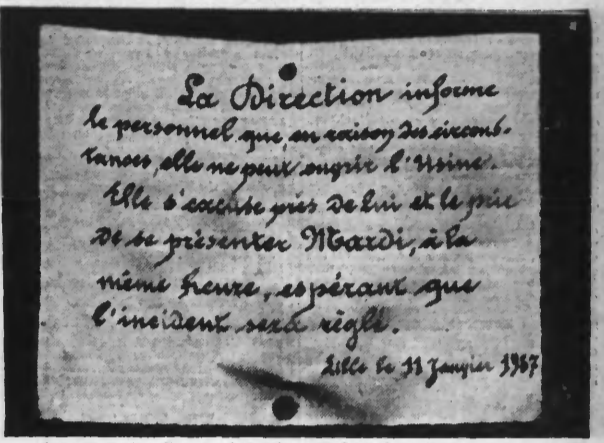 La Direction informe
le personnel que, en raison des circons-
tances, elle ne peut ouvrir l'Usine.
Elle s'excuse près de lui et le prie
de se présenter Mardi, à la
même heure, espérant que
l'incident sera réglé.
Lille le 11 Janvier 1937